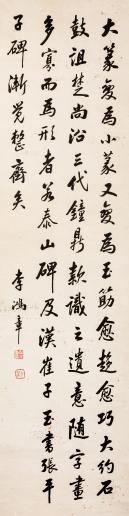 大篆變為小篆又變為玉筯愈趍愈巧大約石
鼓詛楚尚沿三代鐘鼎款識之遺意隨字畫
多寡而為形者若泰山碑及漢崔子玉書張平
子碑漸覺整齊矣
李鴻章